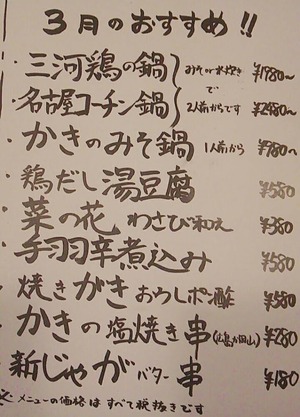 3月のおすすめ!!
・三河鶏の鍋 みそか水炊きで ¥1980〜
・名古屋コーチン鍋 2人前からです ¥2980〜
・かきのみそ鍋 1人前から ¥980〜
・鶏だし湯豆腐 ¥580
・菜の花 わさび和え ¥380
・手羽辛煮込み ¥580
・焼きがき おろしポン酢 ¥580
・かきの塩焼き串(広島か岡山) ¥280
・新じゃがバター串 ¥180
※メニューの価格はすべて税抜きです